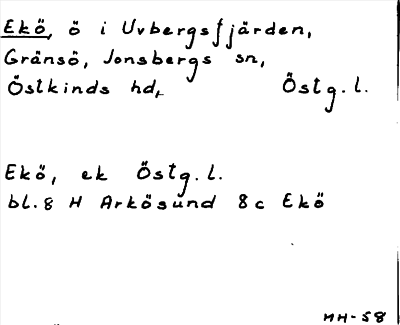 Ekö, ö i Uvbergsfjärden,
Gränsö, Jonsbergs sn,
Östkinds hd, Östg.l.
Ekö, ek Östg.l.
bl.8 H Arkösund 8c Ekö
MH-58